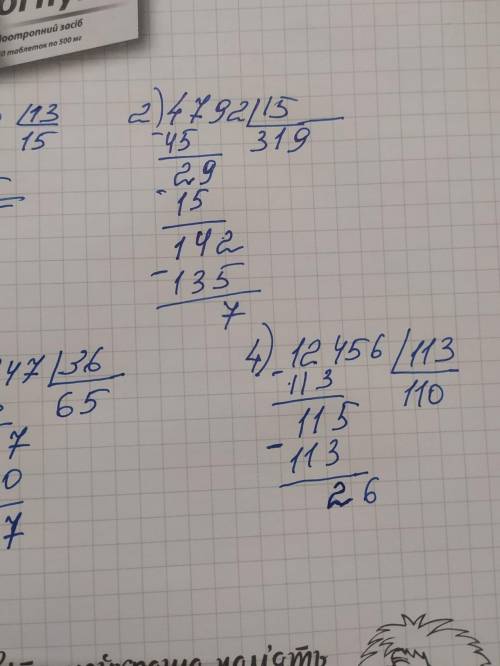 ноотропний засіб
0 таблеток по 500 мг
13
15
2) 4792 15
45 319
29
15
142
- 135
7
47 36
65
7
0
7
4) 12 456 113
- 113 110
115
- 113
26